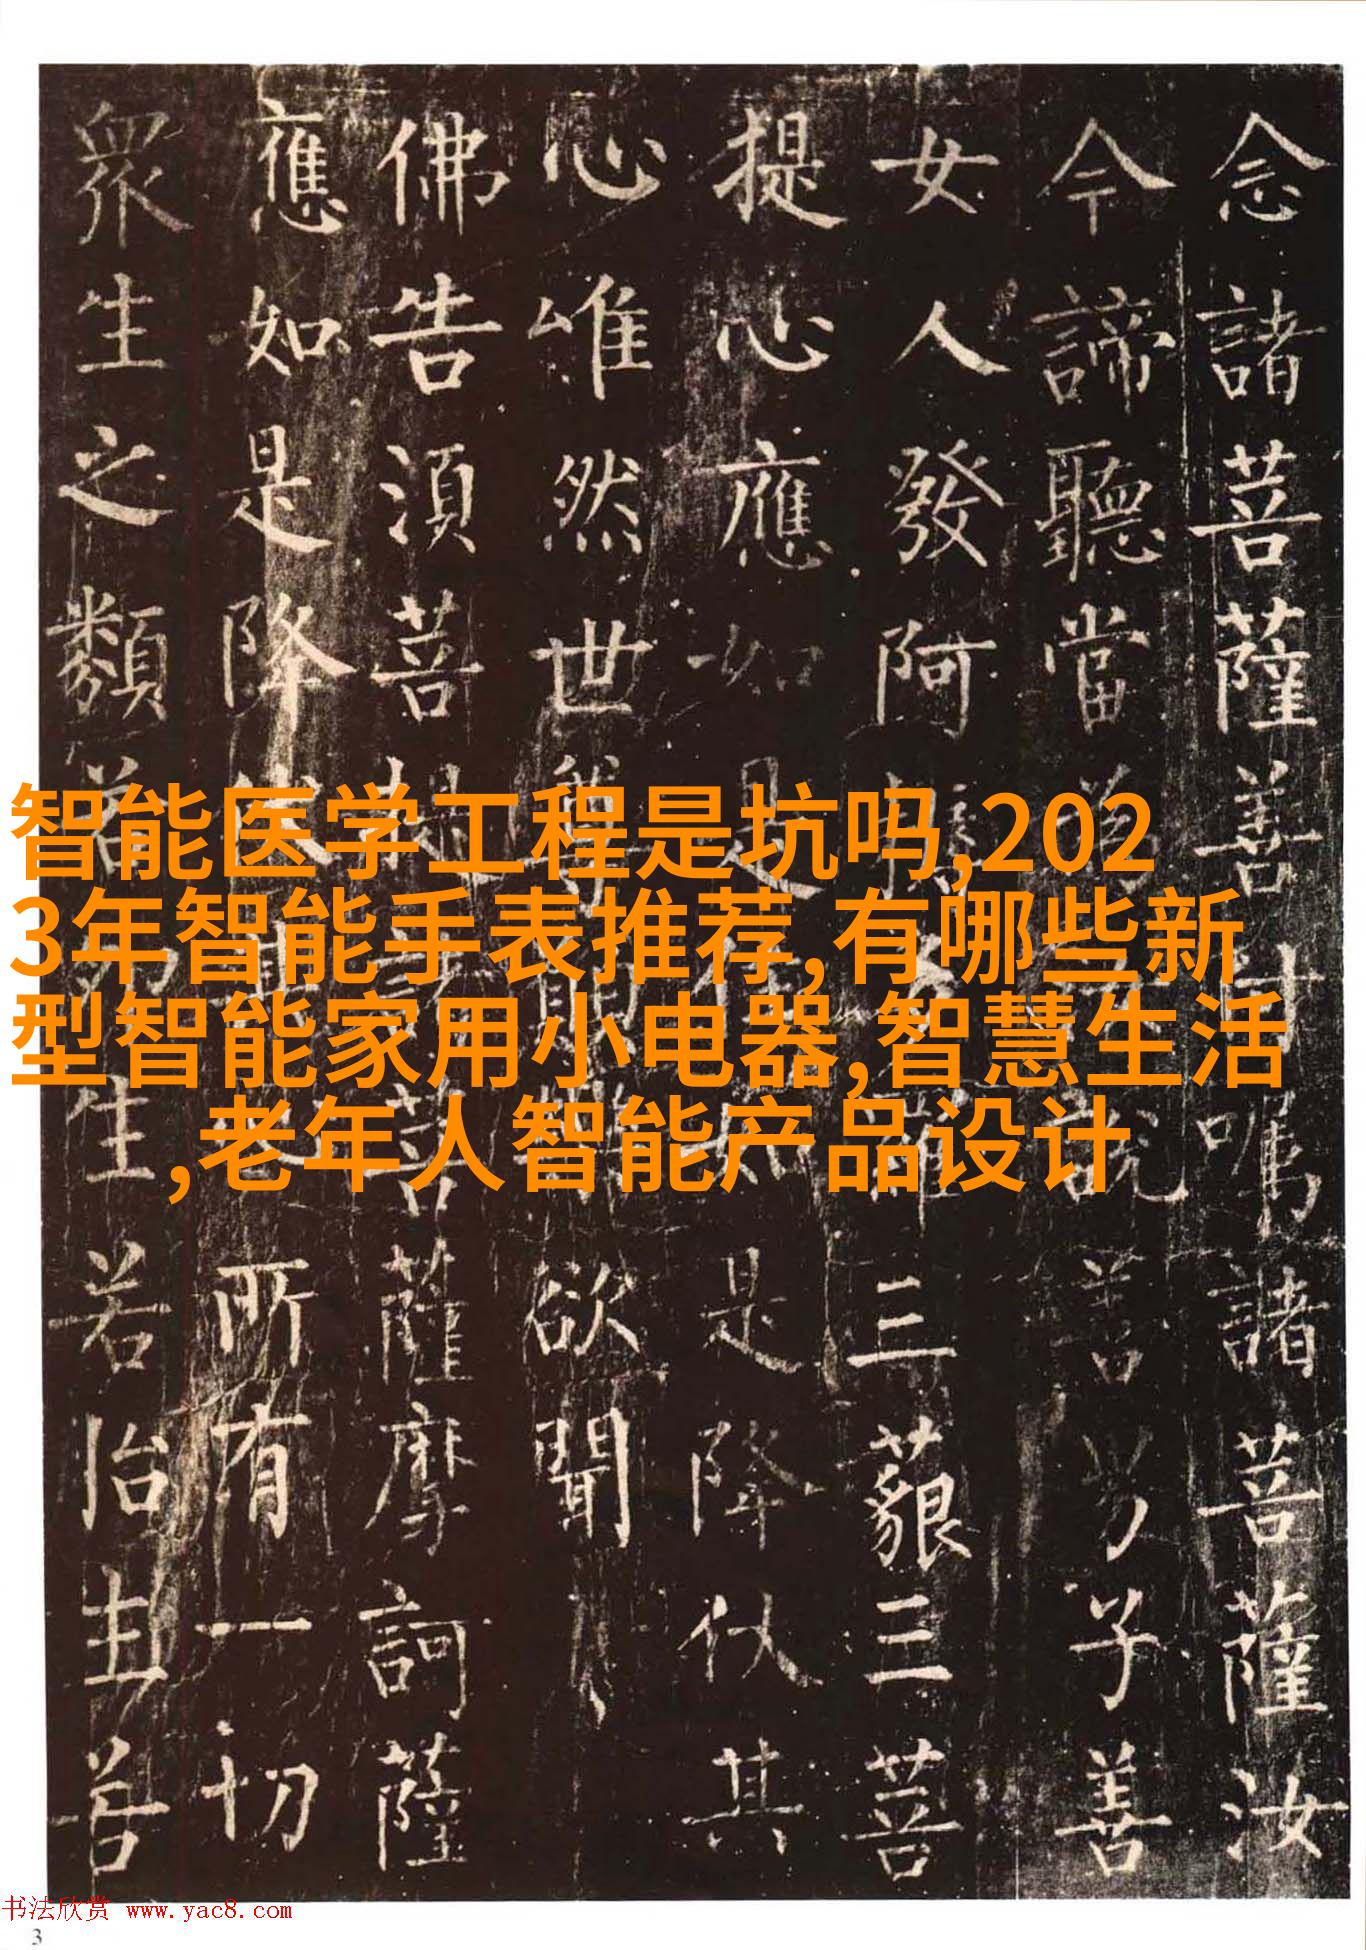 念諸菩薩善付囑諸菩薩汝
今諦聽當說善男子善
女人發阿羅三藐三菩
提心應如是住如是降伏其
心唯然世尊欲聞
佛告須菩提菩薩摩訶薩
應如是降伏所有一切
眾生之類若卵生若胎生若
智能医学工程是坑吗,202
3年智能手表推荐,有哪些新
型智能家用小电器,智慧生活
,老年人智能产品设计
书法欣赏 www.yac8.com
3